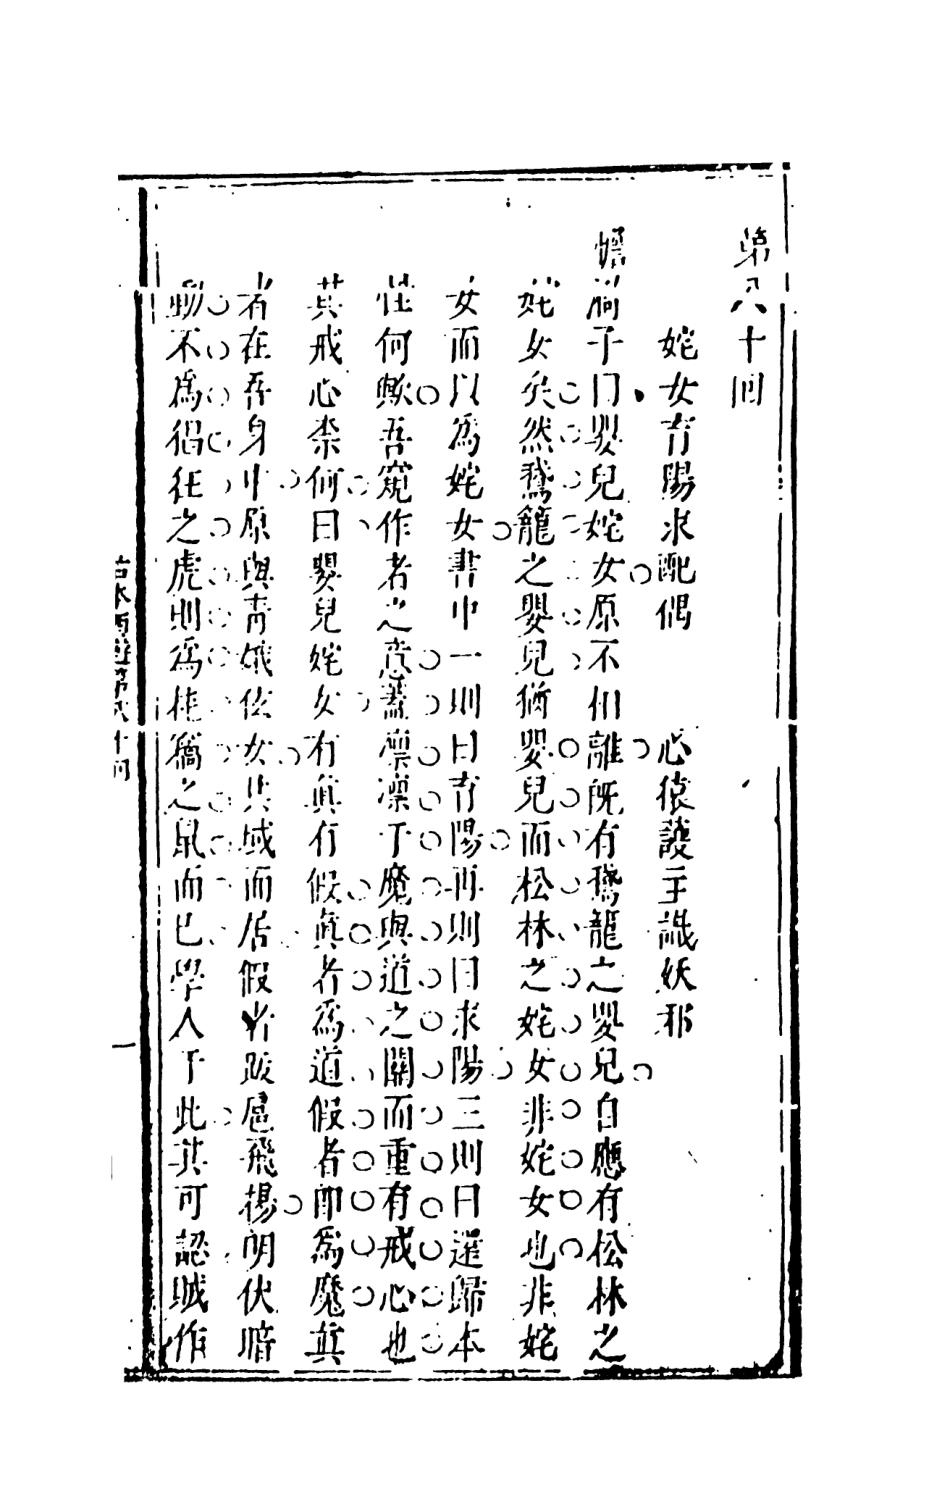 第八十回
姹女育陽求配偶　心猿護主識妖邪
憺漪子曰嬰兒姹女原不相離既有鵞籠之嬰兒自應有松林之
姹女矣然鵞籠之嬰兒猶嬰兒而松林之姹女非姹女也非姹
女而以為姹女書中一則曰育陽再則曰求陽三則曰還歸本
性何歟吾窺作者之意蓋凜凜于魔與道之關而重有戒心也
其戒心柰何曰嬰兒姹女有眞有假眞者為道假者即為魔眞
者在吾身中原與青娥佐女共域而居假者跋扈飛揚明伏暗
動不為猖狂之虎則為推窩之鼠而已學人于此其可認賊作
古本西遊第八十回
一